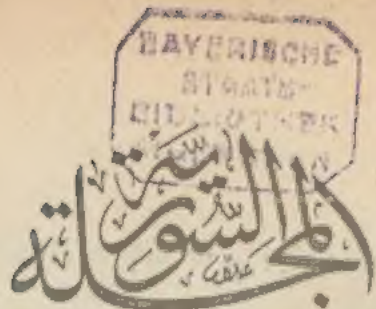 BAYERISCHE
STAATS-
BIBLIOTHEK
المجلة السورية